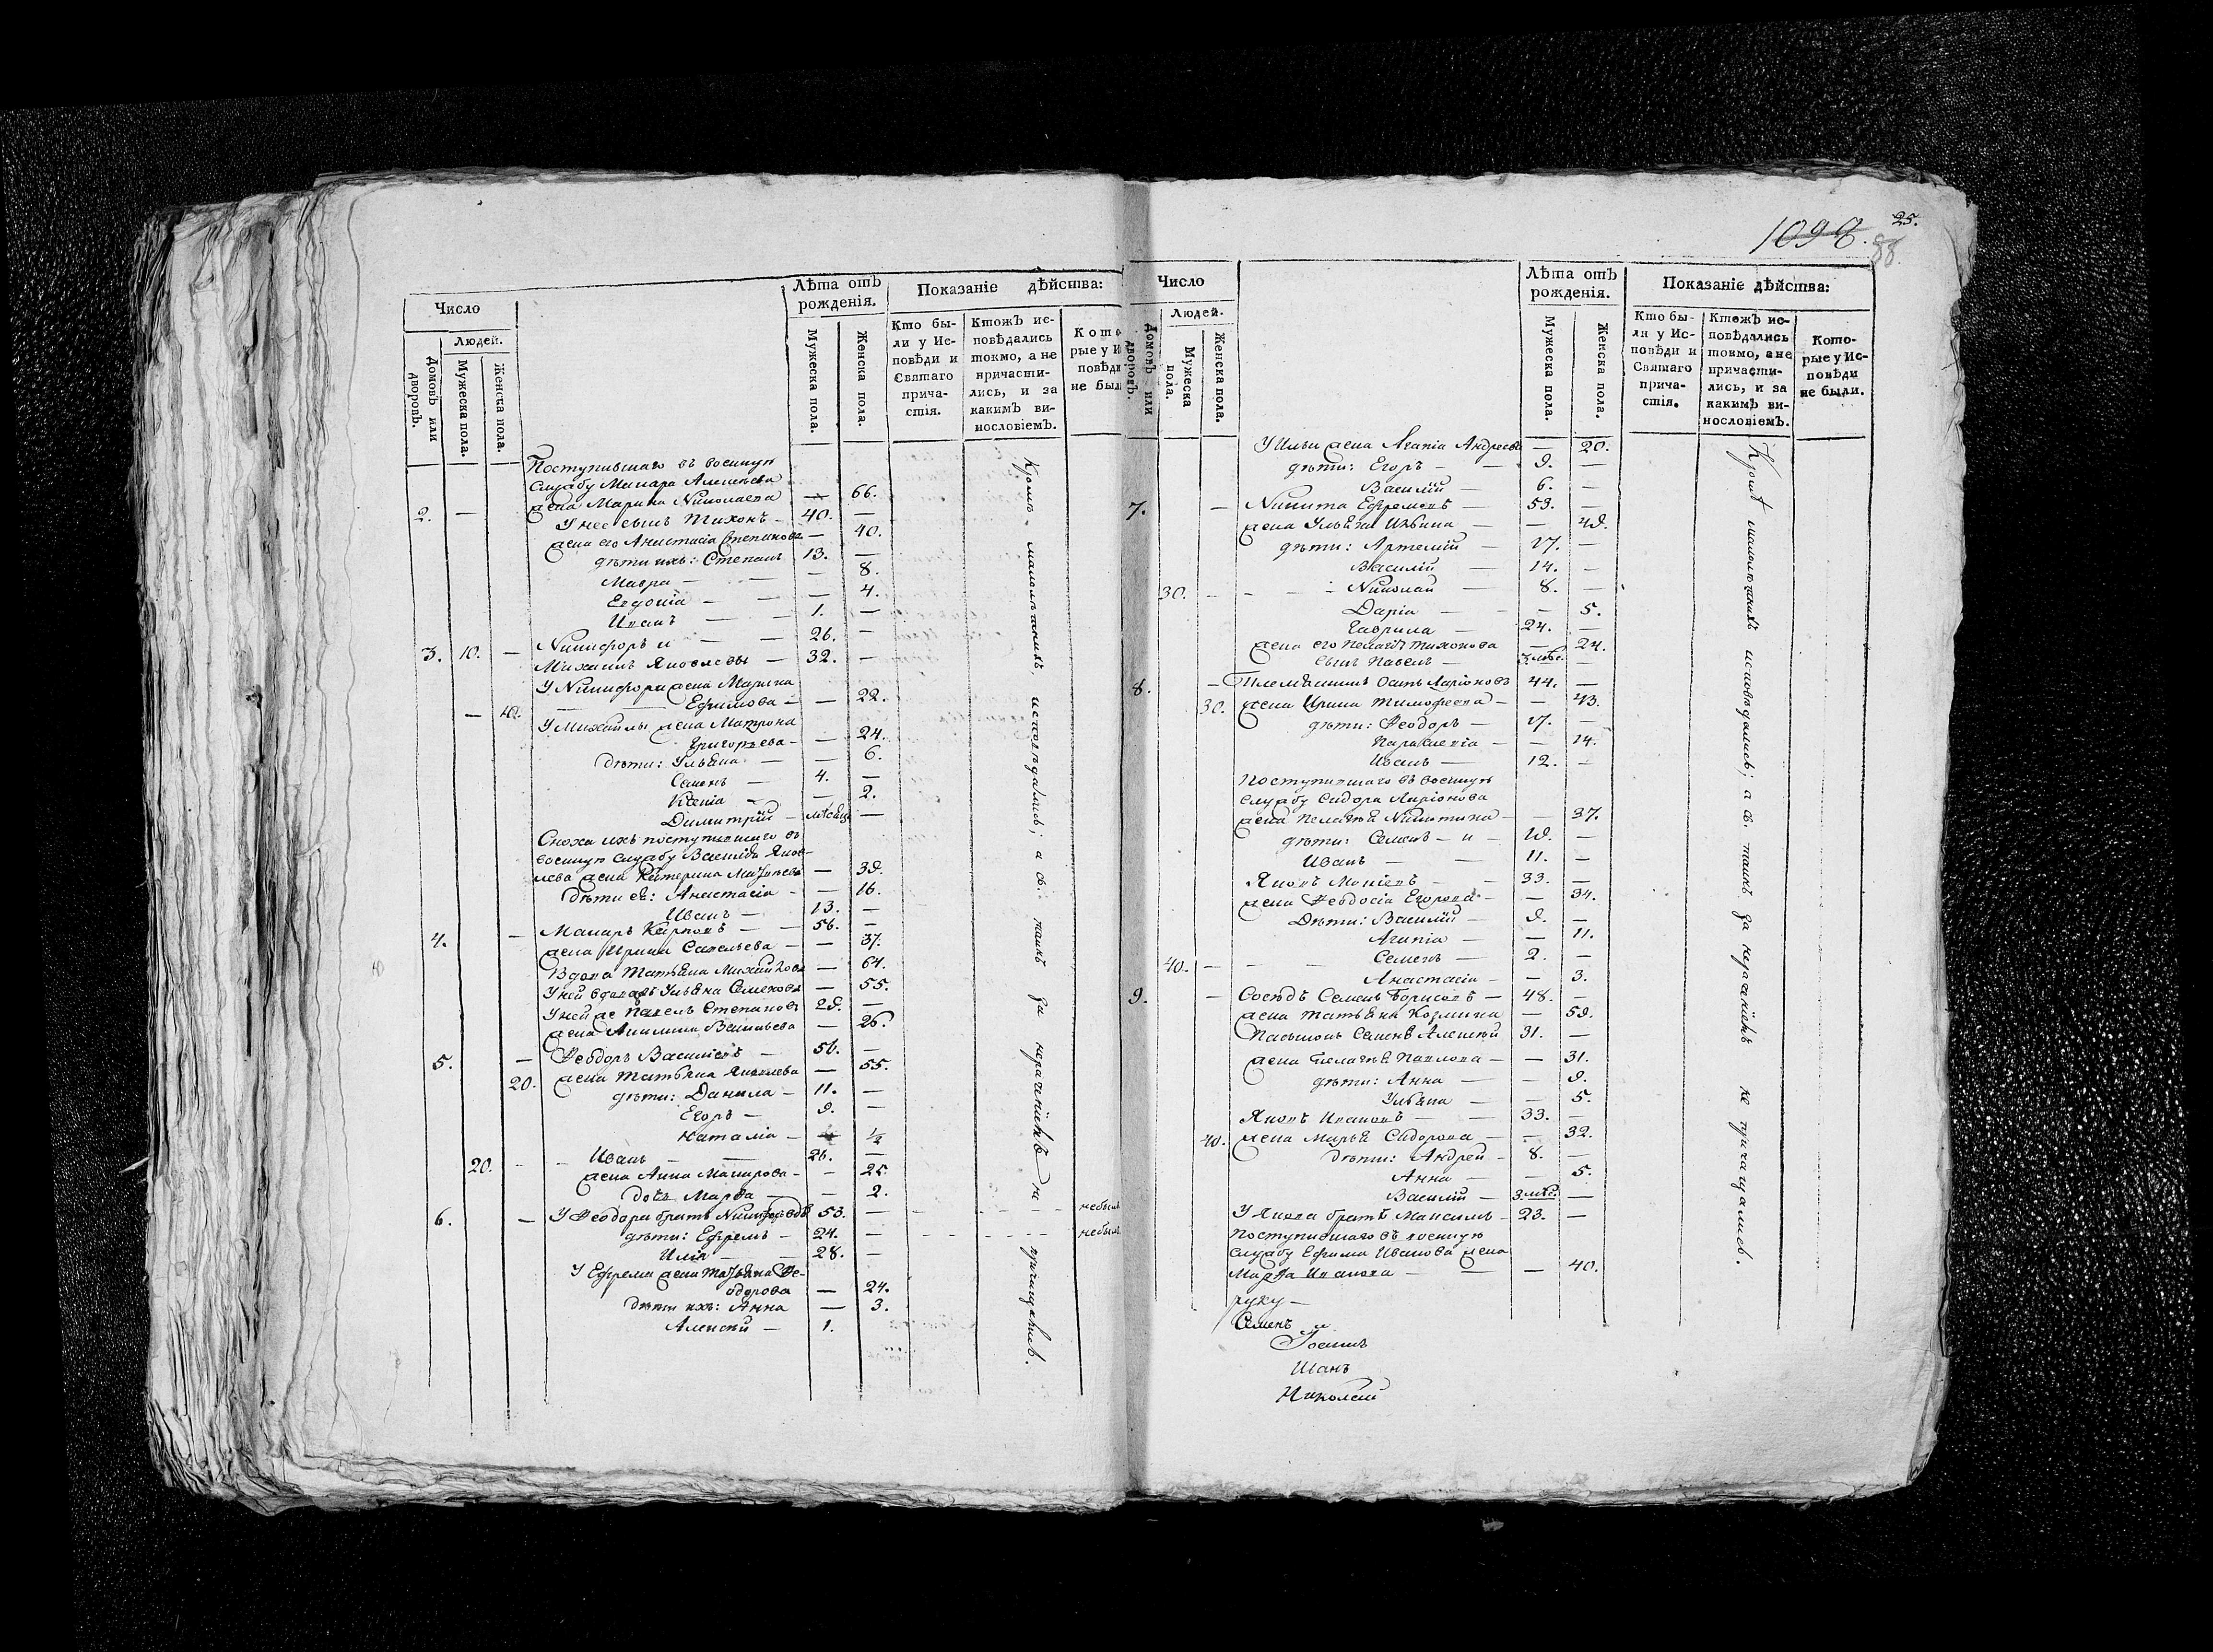 Число
Людей.
Домовъ или дворовъ.
Мужеска пола.
Женска пола.
Лѣта отъ рожденія.
Мужеска пола.
Женска пола.
Показаніе дѣйства:
Кто бы-
ли у Ис-
повѣди и
Святаго
прича-
стія.
Ктожъ ис-
повѣдались
токмо, а не
причасти-
лись, и за
какимъ ви-
нословіемъ.
Кото
рые у И
повѣди
не был
Поступившаго въ военную
службу Макара Алексѣева
жена Марина Николаева — 66.
2. — У нее сынъ Тихонъ — 40. —
жена его Анастасіа Степанова — 40.
дѣти ихъ: Степанъ 13. —
Мавра — — 8.
Евдокіа — — 4.
Иванъ — 1. —
Никифоръ и — 26. —
3. 10. — Михаилъ Яковлевы — 32. —
У Никифора жена Марьина
— Ефимова — — 22.
У Михаилы жена Матрона
Григорьева — — 24.
дѣти: Ульяна — — 6.
Семенъ — 4. —
Ксеніа — — 2.
Димитрій — мѣсяцъ —
Сноха ихъ поступившаго въ
военную службу Василія Яков-
лева жена Катерина Матвѣева — 39.
Дѣти ея: Анастасіа — — 16.
Иванъ — 13. —
4. — Макаръ Карповъ — 56. —
жена Ирина Савельева — — 37.
Вдова Татьяна Михайлова — 64.
У ней вдова Ульяна Семенова — 55.
У ней же Павелъ Степановъ 29. —
жена Акилина Васильева — 26.
5. — Ѳеодоръ Василіевъ — 56. —
20. жена Татьяна Яковлева — 55.
дѣти: Данила — 11. —
Егоръ — 9. —
Наталіа — — ½
20. — Иванъ — 26. —
жена Анна Макарова — — 25
дочь Марѳа — — 2.
6. — У Ѳеодора братъ Никифоръ 53. — небыл
дѣти: Ефремъ — 24. — небыл
Иліа — 28. —
У Ефрема жена Татьяна Ѳе-
одорова — 24.
дѣти ихъ: Анна — 3.
Алексѣй — 1.
Кромѣ малолѣтнихъ, исповѣдались; а св. таинъ за нераченіемъ не причащались.
1098. 25.
88.
Число
Людей.
Домовъ или дворовъ.
Мужеска пола.
Женска пола.
Лѣта отъ рожденія.
Мужеска пола.
Женска пола.
Показаніе дѣйства:
Кто бы-
ли у Ис-
повѣди и
Святаго
прича-
стія.
Ктожъ ис-
повѣдались
токмо, а не
причасти-
лись, и за
какимъ ви-
нословіемъ.
Кото-
рые у Ис-
повѣди
не были.
У Ильи жена Агапіа Андреева — 20.
дѣти: Егоръ — 9. —
Василій 6. —
7. — Никита Ефремовъ — 53. —
жена Ульяна Ильина — — 49.
дѣти: Артемій — 17. —
Василій — 14. —
30. — Николай — 8. —
Даріа — — 5.
Гаврила — 24. —
жена его Пелагѣя Тихонова — 24.
сынъ Павелъ — 3. мѣс. —
8. — Племянникъ Осипъ Ларіоновъ 44. —
30. жена Ирина Тимофеева — — 43.
дѣти: Ѳеодоръ — 17. —
Параскевіа — — 14.
Иванъ — 12. —
Поступившаго въ военную
службу Сидора Ларіонова
жена Пелагѣя Никитина — — 37.
дѣти: Семенъ — и — 19. —
Иванъ — 11. —
Яковъ Мокіевъ — 33. —
жена Ѳеодосіа Егорова — — 34.
Дѣти: Василій — 9. —
Агапіа — — 11.
40. — Семенъ — 2. —
Анастасіа — — 3.
9. — Сосѣдъ Семенъ Борисовъ — 48. —
жена Татьяна Козмина — 59.
Пасынокъ Семена Алексѣй 31. —
жена Пелагѣя Павлова — — 31.
дѣти: Анна — — 9.
Ульяна — — 5.
Яковъ Ивановъ — 33. —
40. жена Марья Сидорова — — 32.
дѣти: Андрей — 8. —
Анна — — 5.
Василій — 3. мѣс. —
У Якова братъ Максимъ — 23. —
Поступившаго въ военную
службу Ефима Иванова жена
Марѳа Иванова — — 40.
руку —
Семенъ и
Іосифъ
Иванъ
Николай
Кромѣ малолѣтнихъ исповѣдались; а св. таинъ за нераченіемъ не причащались.